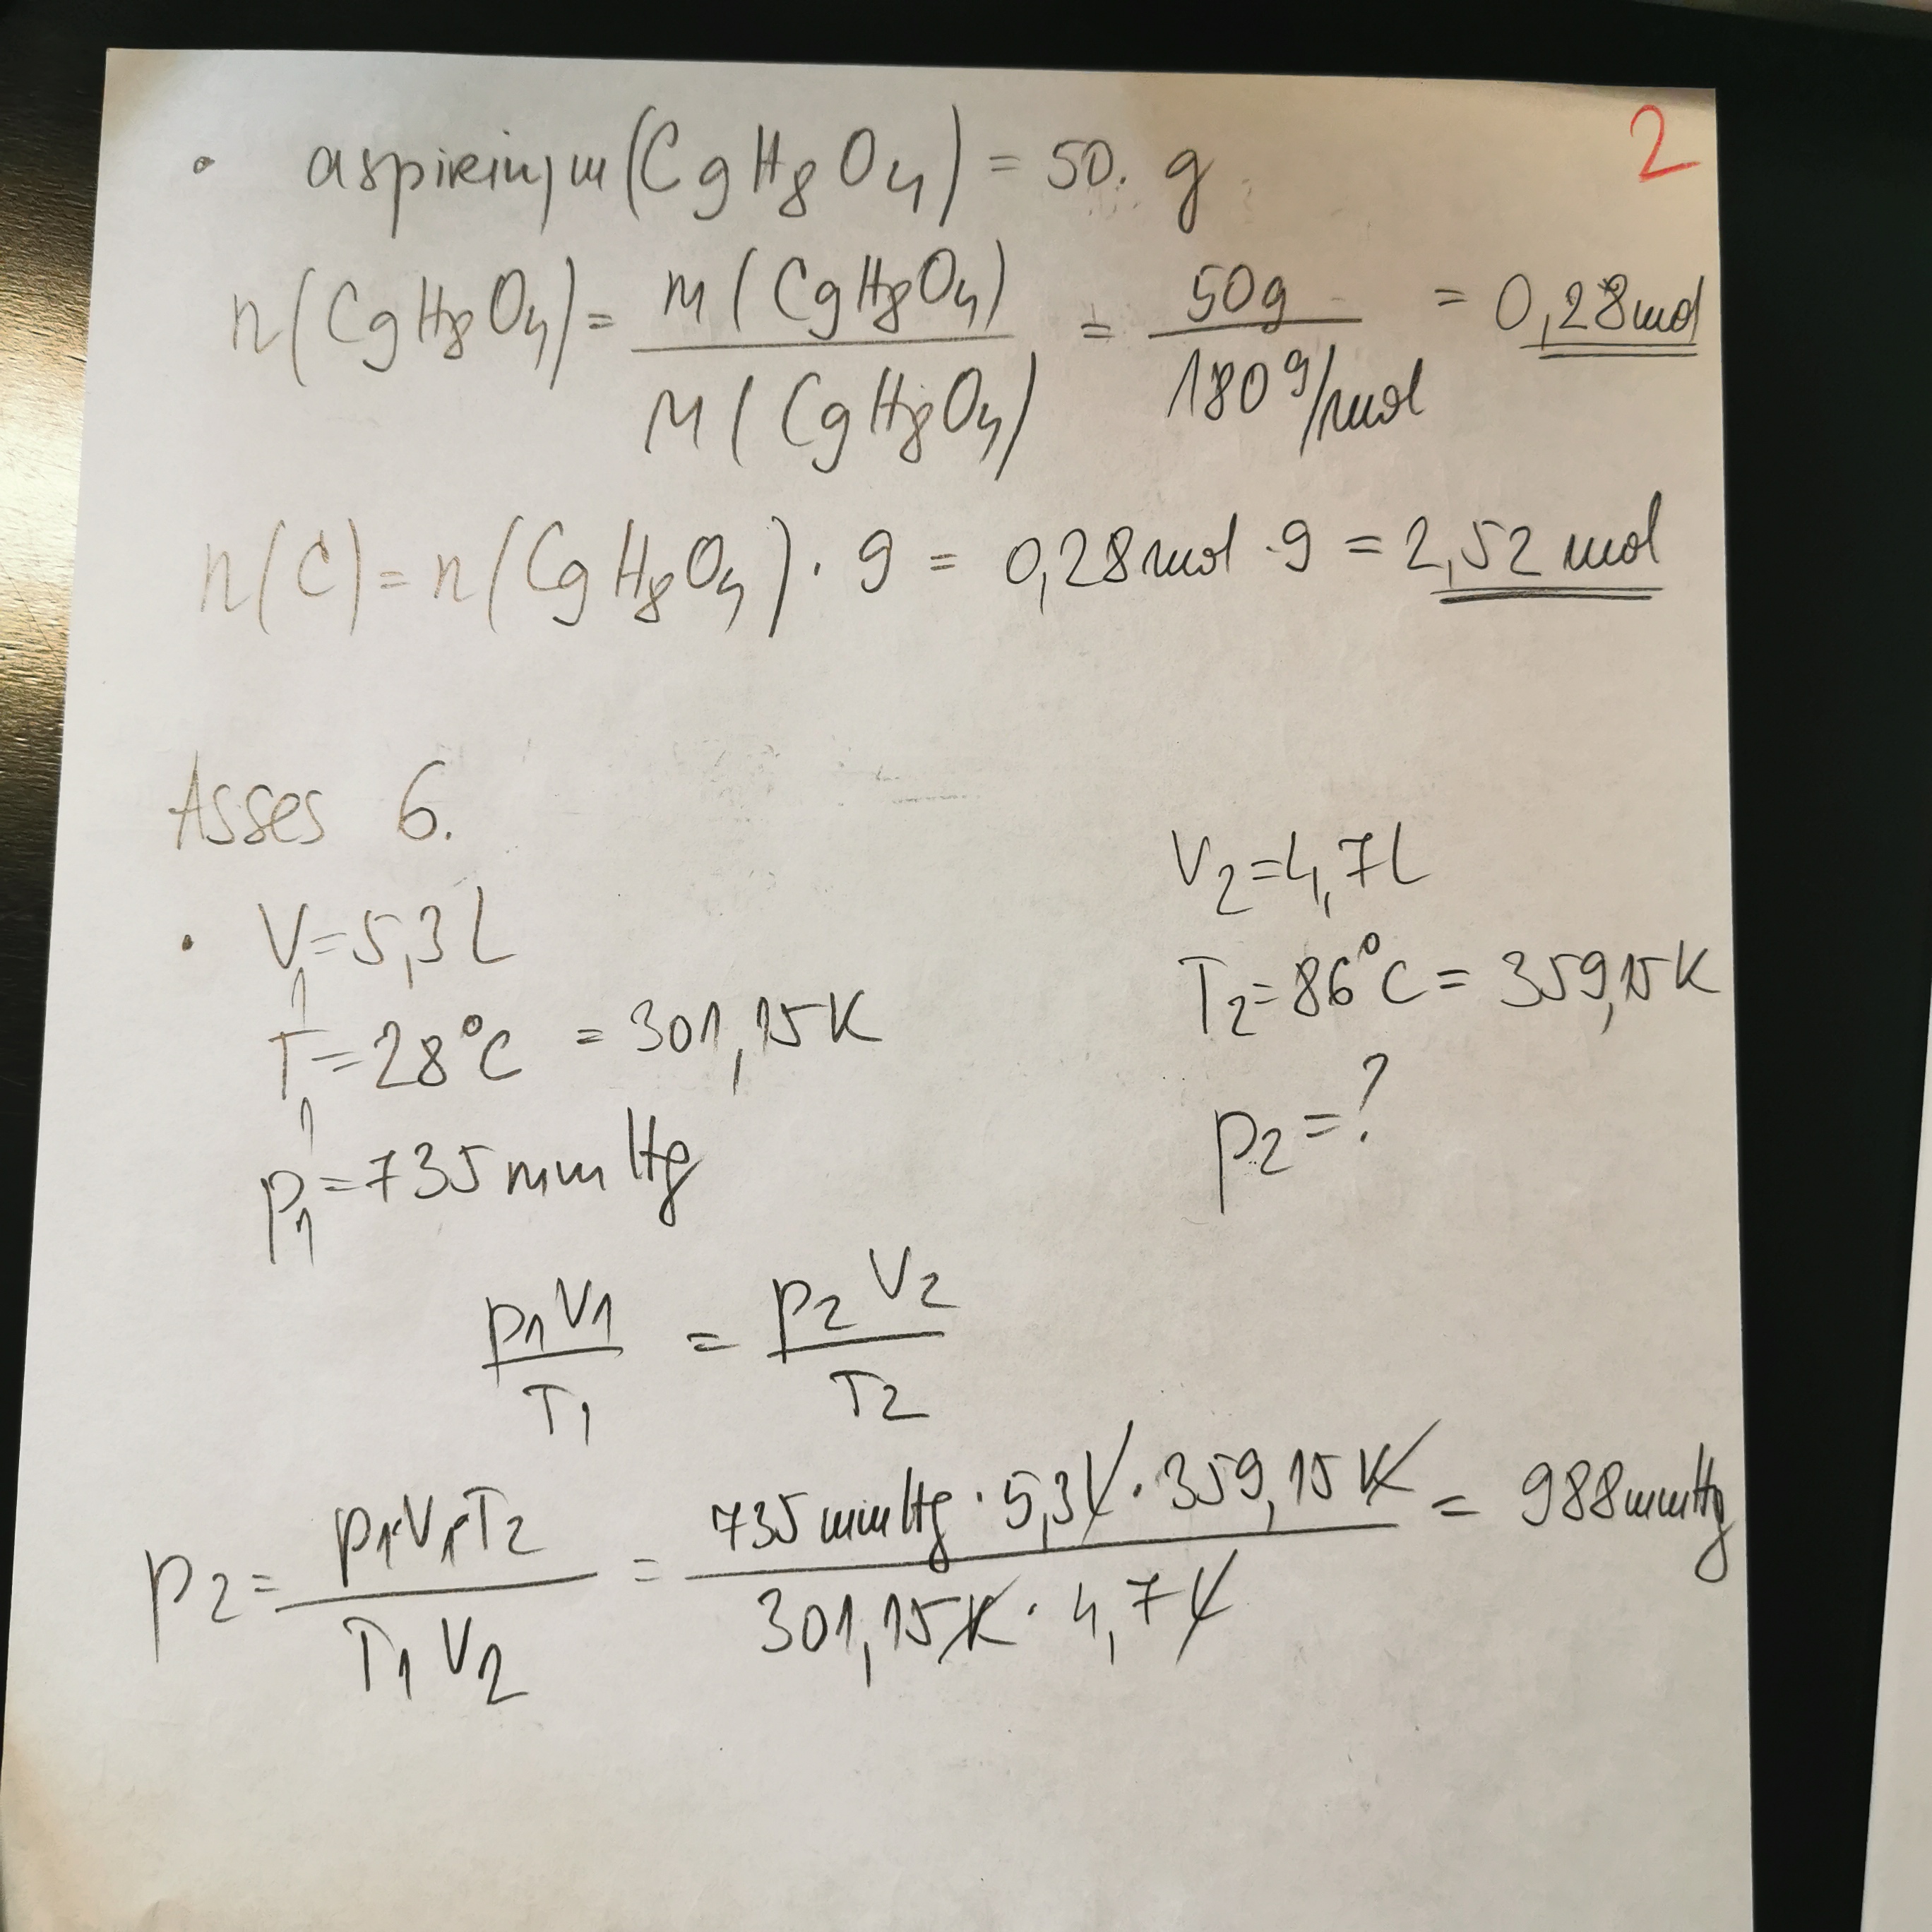 2
• aspirin, m(C9H8O4) = 50. g
n(C9H8O4) = m(C9H8O4) / M(C9H8O4) = 50g / 180 g/mol = 0,28 mol
n(C) = n(C9H8O4) · 9 = 0,28 mol · 9 = 2,52 mol
Asses 6.
• V1 = 5,3 L
T1 = 28°C = 301,15 K
p1 = 735 mm Hg
V2 = 4,7 L
T2 = 86°C = 359,15 K
p2 = ?
p1 V1 / T1 = p2 V2 / T2
p2 = p1·V1·T2 / T1 V2 = 735 mmHg · 5,3 L · 359,15 K / 301,15 K · 4,7 L = 988 mmHg